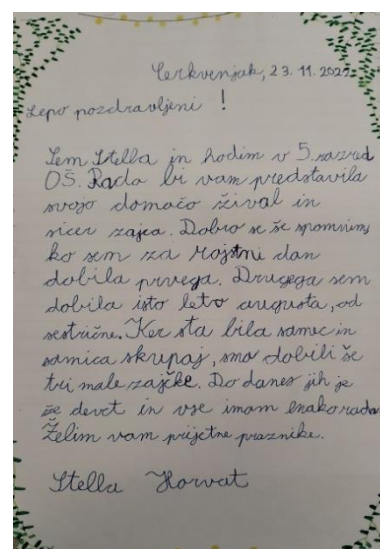 Cerkvenjak, 23. 11. 2022
Lepo pozdravljeni !
Sem Stella in hodim v 5. razred
OŠ. Rada bi vam predstavila
svojo domačo žival in
sicer zajca. Dobro se še spomnim,
ko sem za rojstni dan
dobila prvega. Drugega sem
dobila isto leto avgusta, od
sestrične. Ker sta bila samec in
samica skupaj, smo dobili še
tri male zajčke. Do danes jih je
že devet in vse imam enako rada.
Želim vam prijetne praznike.
Stella Horvat